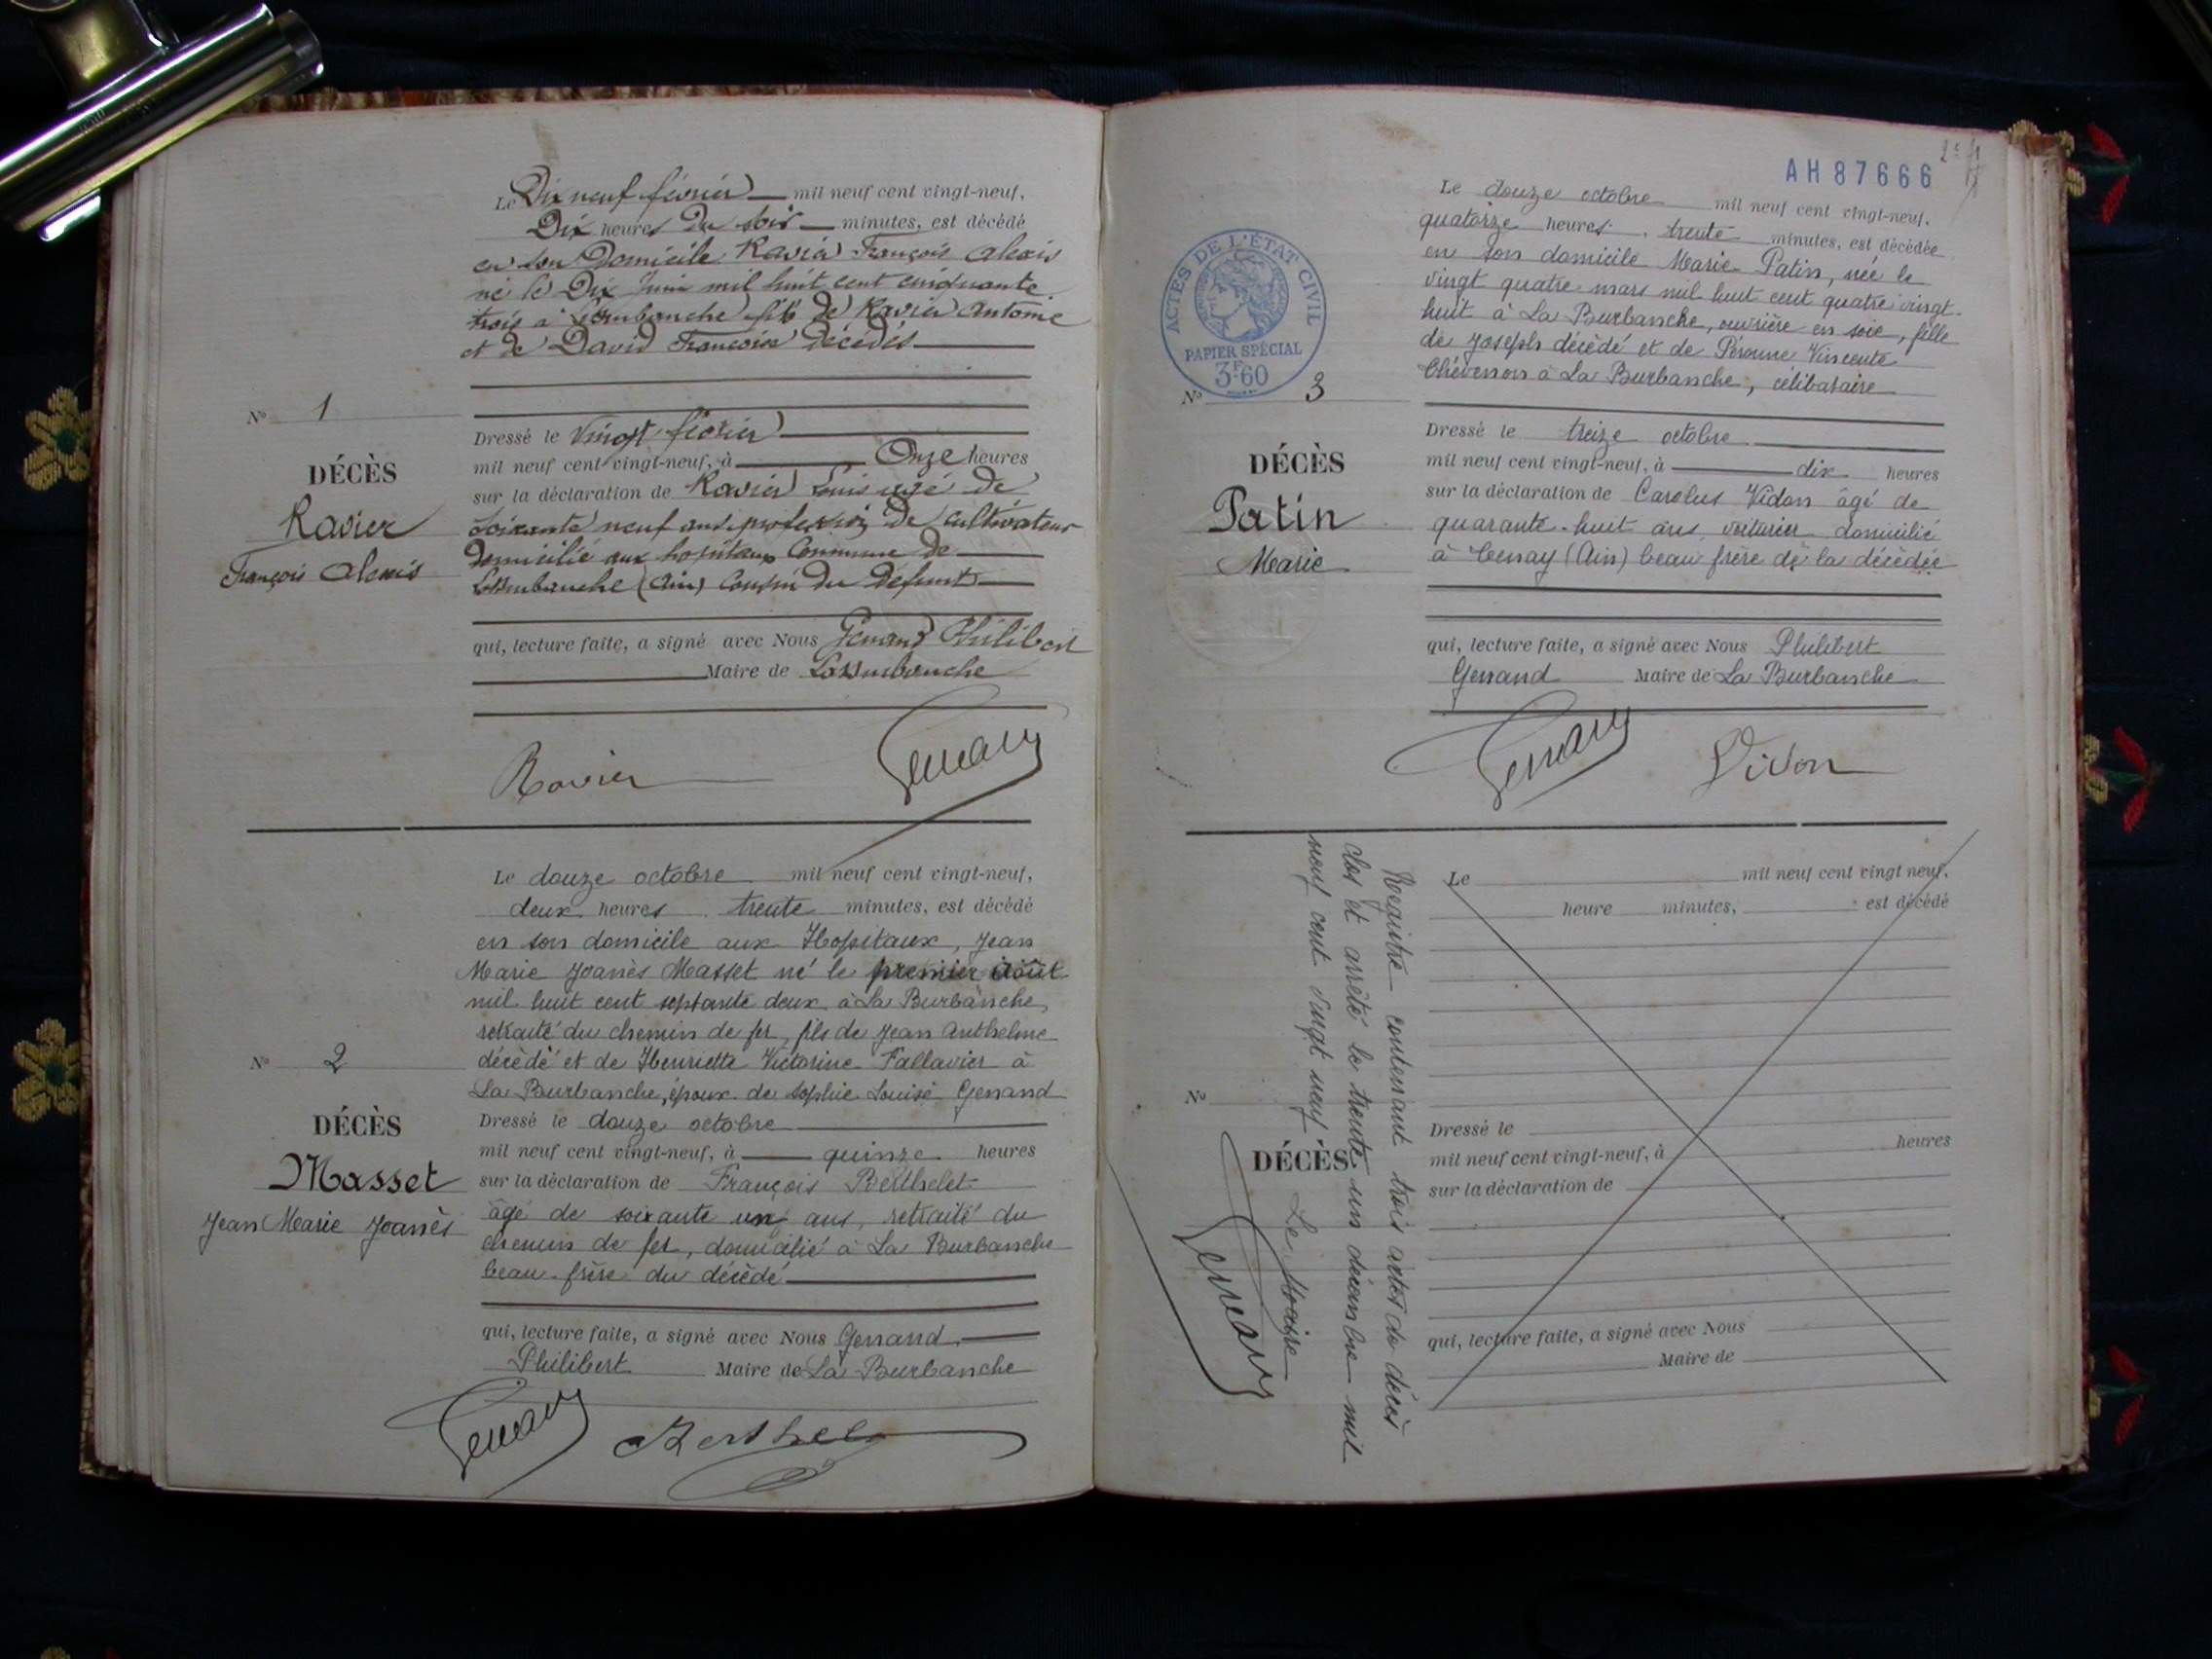 Le Dix neuf février mil neuf cent vingt-neuf,
Dix heures du soir minutes, est décédé
en son Domicile Ravier François Alexis
né le Dix Juin mil huit cent cinquante
trois à Laburbanche fils de Ravier Antoine
et de David Françoise décédés
N° 1
DÉCÈS
Ravier
François Alexis
Dressé le Vingt février
mil neuf cent vingt-neuf, à Onze heures
sur la déclaration de Ravier Louis agé de
soixante neuf ans profession de cultivateur
domicilié aux hopitaux Commune de
Laburbanche (Ain) Cousin du défunt
qui, lecture faite, a signé avec Nous Genand Philibert
Maire de Laburbanche
Ravier Genand
Le douze octobre mil neuf cent vingt-neuf,
deux heures trente minutes, est décédé
en son domicile aux Hopitaux, Jean
Marie Joanès Masset né le premier août
mil huit cent septante deux à La Burbanche,
retraité du chemin de fer, fils de Jean Anthelme
décédé et de Henriette Victorine Fallavier à
La Burbanche, époux de Sophie Louise Genand
N° 2
DÉCÈS
Masset
Jean Marie Joanès
Dressé le douze octobre
mil neuf cent vingt-neuf, à quinze heures
sur la déclaration de François Berthelet
âgé de soixante un ans, retraité du
chemin de fer, domicilié à La Burbanche
beau-frère du décédé
qui, lecture faite, a signé avec Nous Genand
Philibert Maire de La Burbanche
Genand Berthel
AH 87666
Le douze octobre mil neuf cent vingt-neuf.
quatorze heures trente minutes, est décédée
en son domicile Marie Patin, née le
vingt quatre mars mil huit cent quatre vingt-
huit à La Burbanche, ouvrière en soie, fille
de Joseph décédé et de Péronne Vincente
Chévenon à La Burbanche, célibataire
ACTES DE L'ÉTAT CIVIL
PAPIER SPÉCIAL
3F60
N° 3
DÉCÈS
Patin
Marie
Dressé le treize octobre
mil neuf cent vingt-neuf, à dix heures
sur la déclaration de Carolus Vidon âgé de
quarante-huit ans, voiturier domicilié
à Tenay (Ain) beau frère de la décédée
qui, lecture faite, a signé avec Nous Philibert
Genand Maire de La Burbanche
Genand Vidon
Le mil neuf cent vingt neuf,
heure minutes, est décédé
N°
DÉCÈS
Dressé le
mil neuf cent vingt-neuf, à heures
sur la déclaration de
qui, lecture faite, a signé avec Nous
Maire de
Registre contenant trois actes de décès
clos et arrêté le trente un décembre mil
neuf cent vingt neuf
Le Maire
Genand